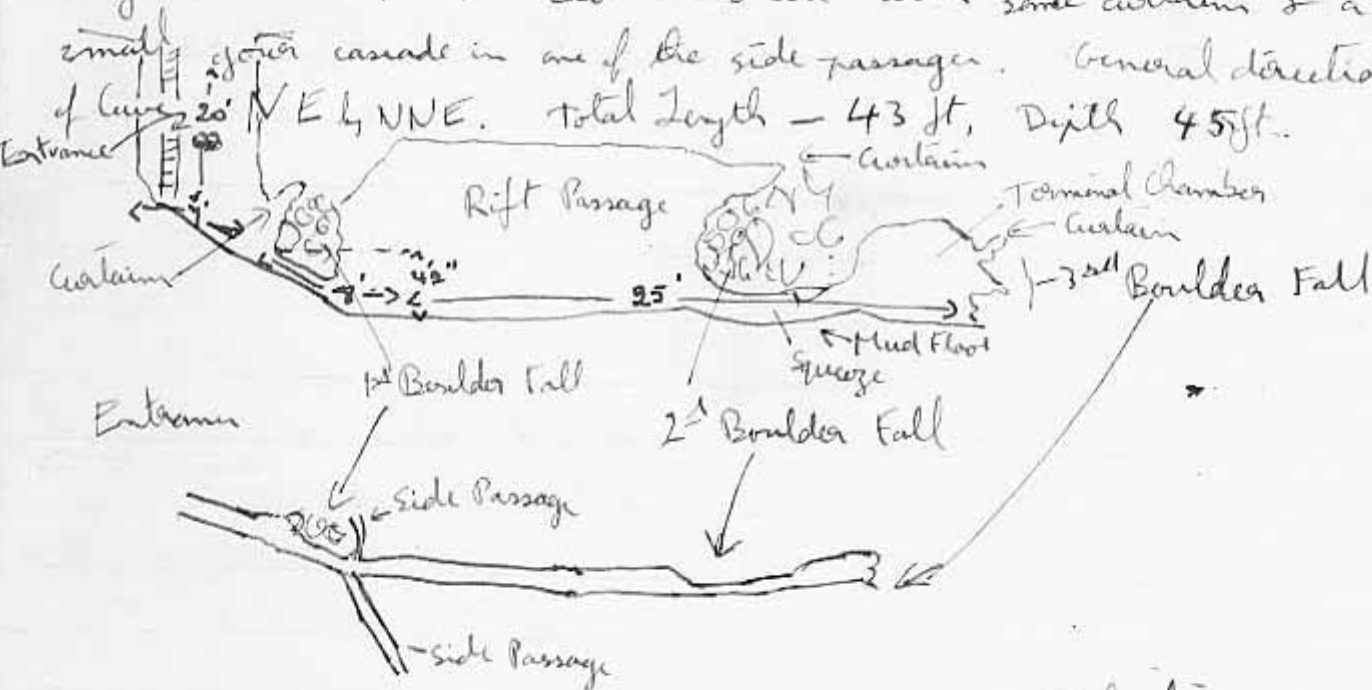 some curtains & a
small gour cascade in one of the side passages. General directio
of Cave NE by NNE. Total Length - 43 ft, Depth 45ft.
20'
Entrance
Curtains
Rift Passage
Terminal Chamber
Curtain
7'
Curtains
42"
8'
25'
3rd Boulder Fall
Mud Floor
Squeeze
1st Boulder Fall
Entrance
2d Boulder Fall
Side Passage
Side Passage